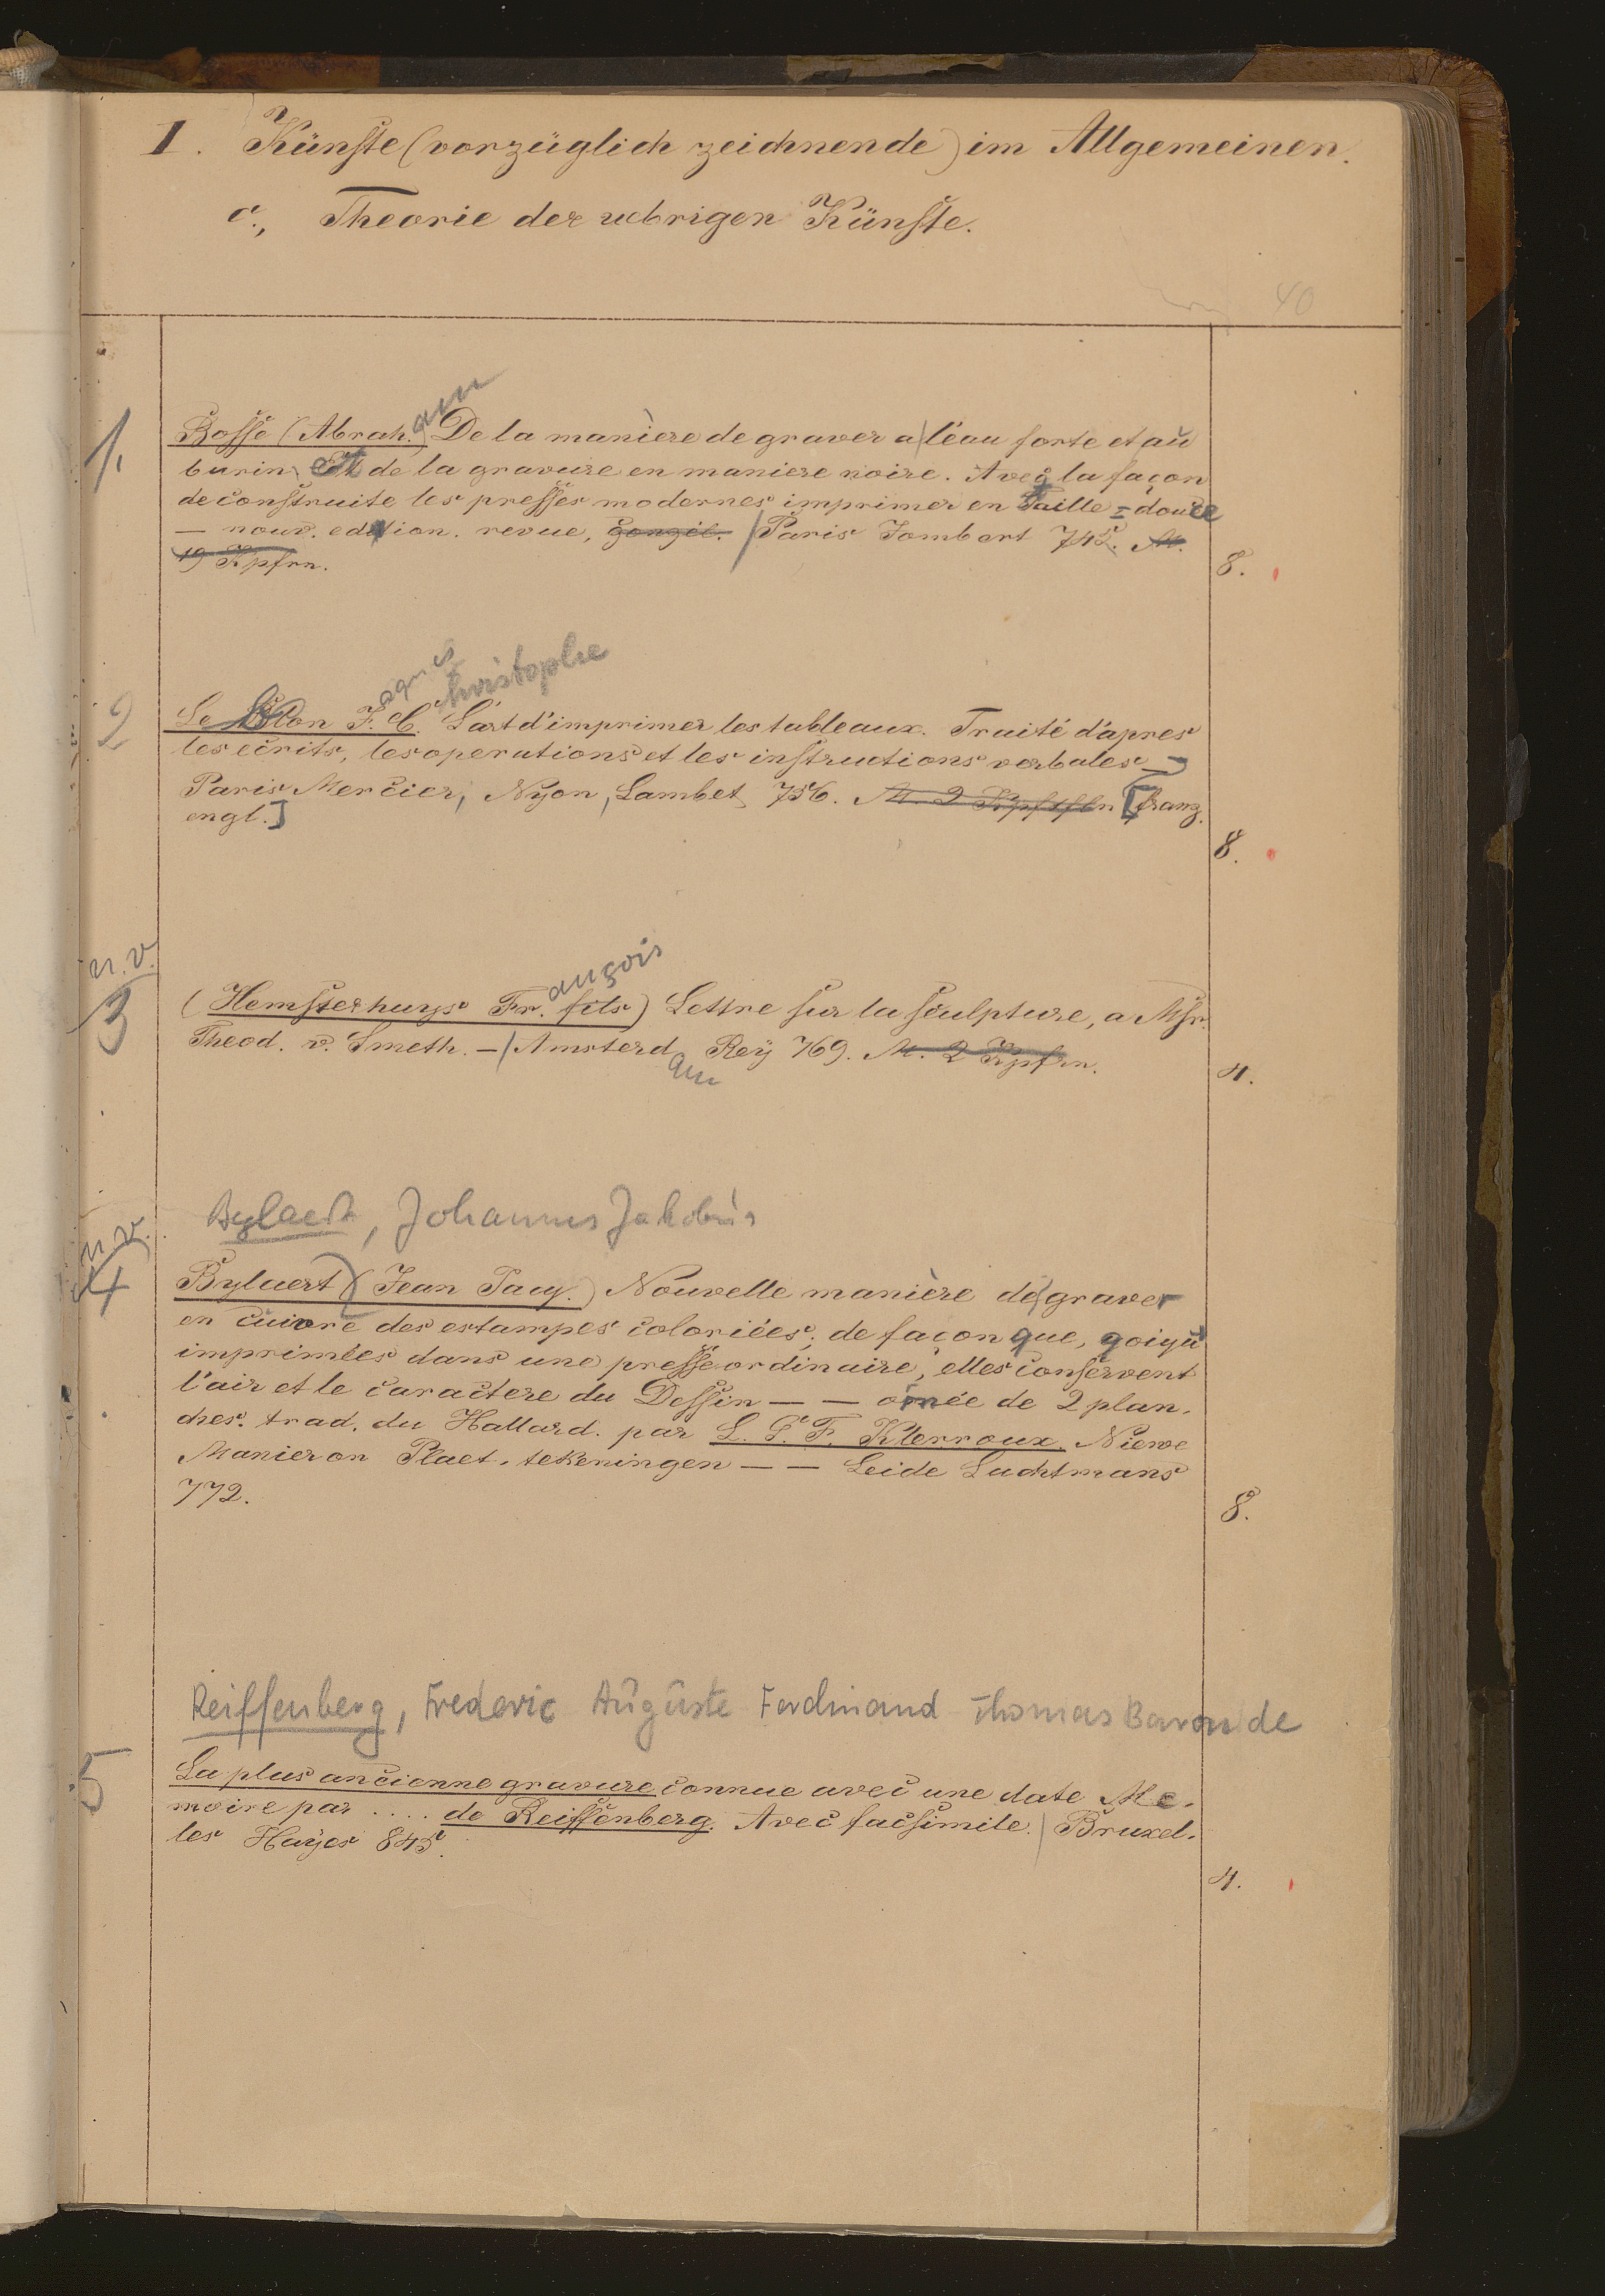 I. Künste (vorzüglich zeichnende) im Allgemeinen.
c., Theorie der uebrigen Künste.
40
am
1. Bosse (Abrah.) De la manière de graver a l'éau forte et au
burin Et de la gravure en maniere noire. Avec la façon
de construite les presses modernes imprimer en Taille = douce
— nouv. edition. revue, Paris Jombert 745. M.
19 Kpfrn.
8.
aques hristophe
2 Le Blon J. C. L'art d'imprimer les tableaux. Traité d'apres
les ecrits, les operations et les instructions verbales —
Paris Mercier, Nyon, Lambet 756. M. 2 Kpftfln [franz.
engl.]
8.
n.v. ançois
3 (Hemsterhuys Fr. fils) Lettre sur la sculpture, a Msr.
Theod. v. Smeth. — Amsterd Rey 769. M. 2 Kpfrn.
am
4.
Bylaert, Johannus Jakobus
n.v.
4 Bylaert (Jean Jacq.) Nouvelle manière de graver
en cuivre des estampes coloriées, de façon que, qoiqu
imprimées dans une presse ordinaire, elles conservent
l'air et le caractere du Dessin — — ornée de 2 plan-
ches. trad. du Holland. par L. G. F. Klerroux. Niewe
Manier on Plaet-tekeningen — — Leide Luchtmans
772.
8.
Reiffenberg, Frederic Auguste Ferdinand Thomas Baron de
5 La plus ancienne gravure connue avec une date Me-
moire par .... de Reiffenberg. Avec facsimile. Bruxel-
les Hayes 845.
4.